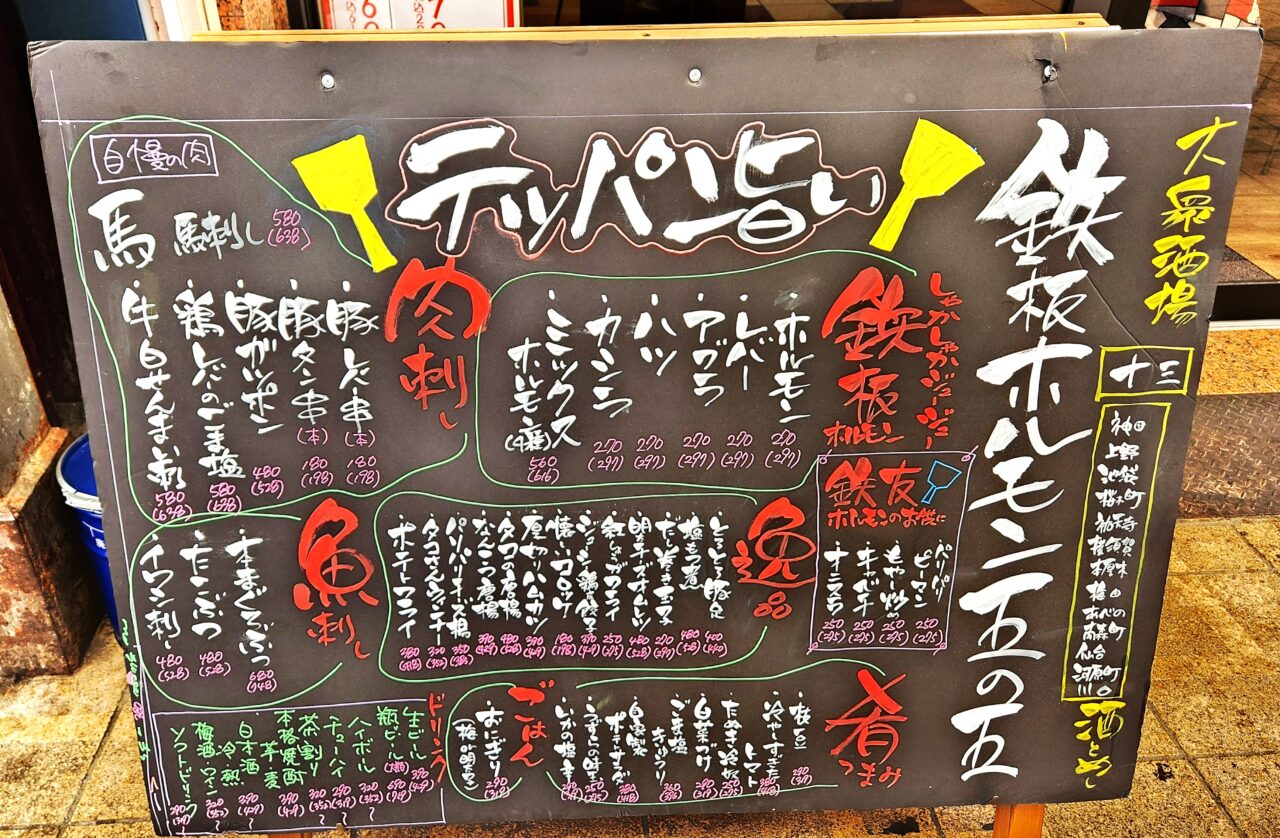 大衆酒場
鉄板ホルモン五の五
十三
神田
上野
池袋
桜木町
祐天寺
横須賀
あべの
仙台
河原町
川口
酒とめし
テッパン旨い
しゃかしゃかジュージュー
鉄板
ホルモン
・ホルモン 270 (297)
・レバー 270 (297)
・アブラ 270 (297)
・ハツ 270 (297)
・カシラ 270 (297)
・ミックスホルモン 560 (616)
鉄友
ホルモンのお供に
・パリパリピーマン 250 (275)
・もやし炒め 250 (275)
・キャベチ 250 (275)
・オニスラ 250 (275)
肉刺し
自慢の肉
馬 馬刺し 580 (638)
・豚レバ串 (本) 180 (198)
・豚タン串 (本) 180 (198)
・豚ガツポン 480 (528)
・鶏レバのごま塩 580 (638)
・牛白せんまい刺 580 (638)
逸品
・とろとろ豚足 400 (440)
・塩もつ煮 480 (528)
・だし巻き玉子 270 (297)
・明太チーズオムレツ 480 (528)
・紅しょうがフライ 250 (275)
・懐かしいコロッケ 180 (198)
・厚切りハムカツ 390 (429)
・タコの唐揚 480 (528)
・なんこつ唐揚 390 (429)
・パリパリチーズ揚 350 (385)
・タコさんウィンナー 320 (352)
・ポテトフライ 380 (418)
魚刺し
・本まぐろぶつ 680 (748)
・たこぶつ 480 (528)
・イワシ刺し 480 (528)
肴
つまみ
・枝豆 290 (319)
・冷やしすぎたトマト
・たぬき冷奴 250 (275)
・白菜づけ 290 (319)
・ごま塩きゅうり 360 (396)
・自家製ポテサラダ 380 (418)
・うずらの味玉 250 (275)
・いかの塩辛
ごはん
・おにぎり (梅or明太) 290 (319)
ドリンク
生ビール 390 (429)
瓶ビール (大瓶) 690 (759)
ハイボール 320 (352)
チューハイ 290 (319)
茶割り 320 (352)
本格焼酎 芋 麦 390 (429)
日本酒 冷 熱 390 (429)
梅酒 ワイン 320 (352)
ソフトドリンク 290 (319)